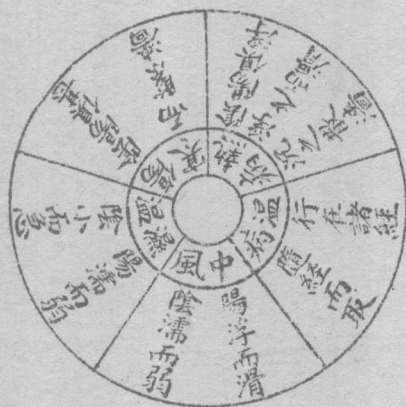 中風
陽浮而滑
陰濡而弱
濕溫
陽濡而弱
陰小而急
傷寒
陰陽俱盛
而緊濇
熱病
陰陽俱浮
浮之而滑
沉之散濇
溫病
行在諸經
隨經而取